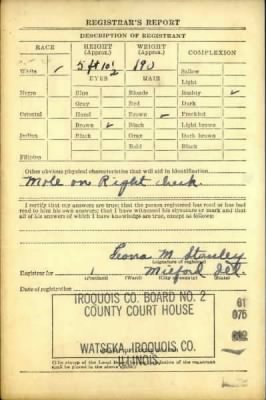 REGISTRAR'S REPORT
DESCRIPTION OF REGISTRANT
RACE HEIGHT (Approx.) WEIGHT (Approx.) COMPLEXION
White ✓ 5 ft 10 1/2 190 Sallow
EYES HAIR Light
Negro Blue Blonde Ruddy ✓
Gray Red Dark
Oriental Hazel Brown ✓ Freckled
Brown ✓ Black Light brown
Indian Black Gray Dark brown
Bald Black
Filipino
Other obvious physical characteristics that will aid in identification
Mole on Right cheek.
I certify that my answers are true; that the person registered has read or has had
read to him his own answers; that I have witnessed his signature or mark and that
all of his answers of which I have knowledge are true, except as follows:
Leona M
(Signature of registrar)
Registrar for 1 Milford Ill.
(Precinct) (Ward) (City or county) (State)
Date of registration
IROQUOIS CO. BOARD NO. 2 61
COUNTY COURT HOUSE 075
WATSEKA, IROQUOIS CO.
ILLINOIS.